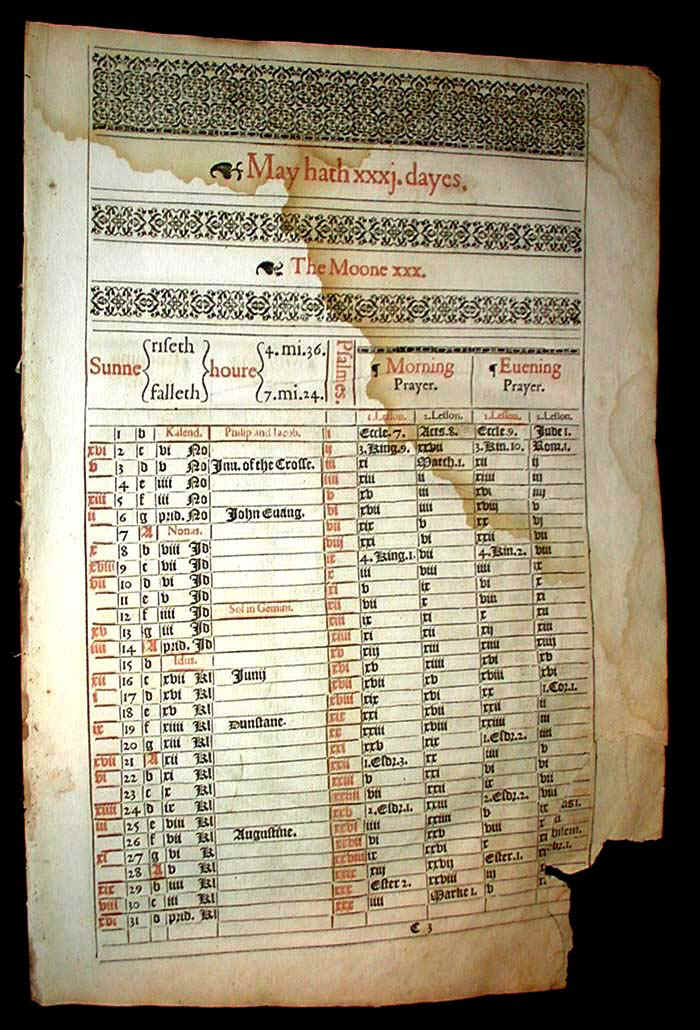 May hath xxxj. dayes.
The Moone xxx.
Sunne riseth falleth houre 4. mi. 36. 7. mi. 24. Psalmes. Morning Prayer. Euening Prayer.
1. Lesson. 2. Lesson. 1. Lesson. 2. Lesson.
1 b Kalend. Philip and Iacob. i Eccle. 7. Acts. 8. Eccle. 9. Jude 1.
xvi 2 c vi No ij 3. King. 9. xxvii 3. Kin. 10. Rom. 1.
v 3 d v No Inu. of the Crosse. iii xi Matth. 1. xii ij
4 e iiii No iiii xiii ii xiiii iii
xiii 5 f iii No v xv iii xvi iiii
ii 6 g prid. No John Euang. vi xvii iiii xviii v
7 A Nonas. vii xix v xx vi
x 8 b viii Jd viij xxi vi xxii vii
xviii 9 c vii Jd ix 4. King. 1. vii 4. Kin. 2. viii
vii 10 d vi Jd x iii viii iiii ix
11 e v Jd xi v ix vi x
12 f iiii Jd Sol in Gemini. xii vii x
xv 13 g iii Jd xiii ix xi x xii
iiii 14 A prid. Jd xiiii xi xii xij xiii
15 b Idus. xv xiij xiii xiiii xiiii
xii 16 c xvii Kl Junij xvi xv xiiii xvi xv
i 17 d xvi Kl xvii xvii xv
18 e xv Kl xviii xix xvi xx 1. Cor. 1.
ix 19 f xiiii Kl Dunstane. xix xxi xvii xxii ii
20 g xiii Kl xx xxiii xviii xxiiii iii
xvii 21 A xii Kl xxi xxv xix 1. Esdr. 2. iiii
vi 22 b xi Kl xxii 1. Esdr. 3. xx iiii v
23 c x Kl xxiii v xxi vi vi
xiiii 24 d ix Kl xxiiii vii xxii ix vii
iii 25 e viii Kl xxv 2. Esdr. 1. xxiii 2. Esdr. 2. viii
26 f vii Kl Augustine. xxvi iiii xxiiii v ix
xi 27 g vi K xxvii vi xxv viii x
28 A v Kl xxviii ix xxvi x xi
xix 29 b iiii Kl xxix xiij xxvij Ester. 1.
viii 30 c iii Kl xxx Ester 2. xxviii iii
xvi 31 d prid. Kl xxx iiii Marke 1. v
C 3